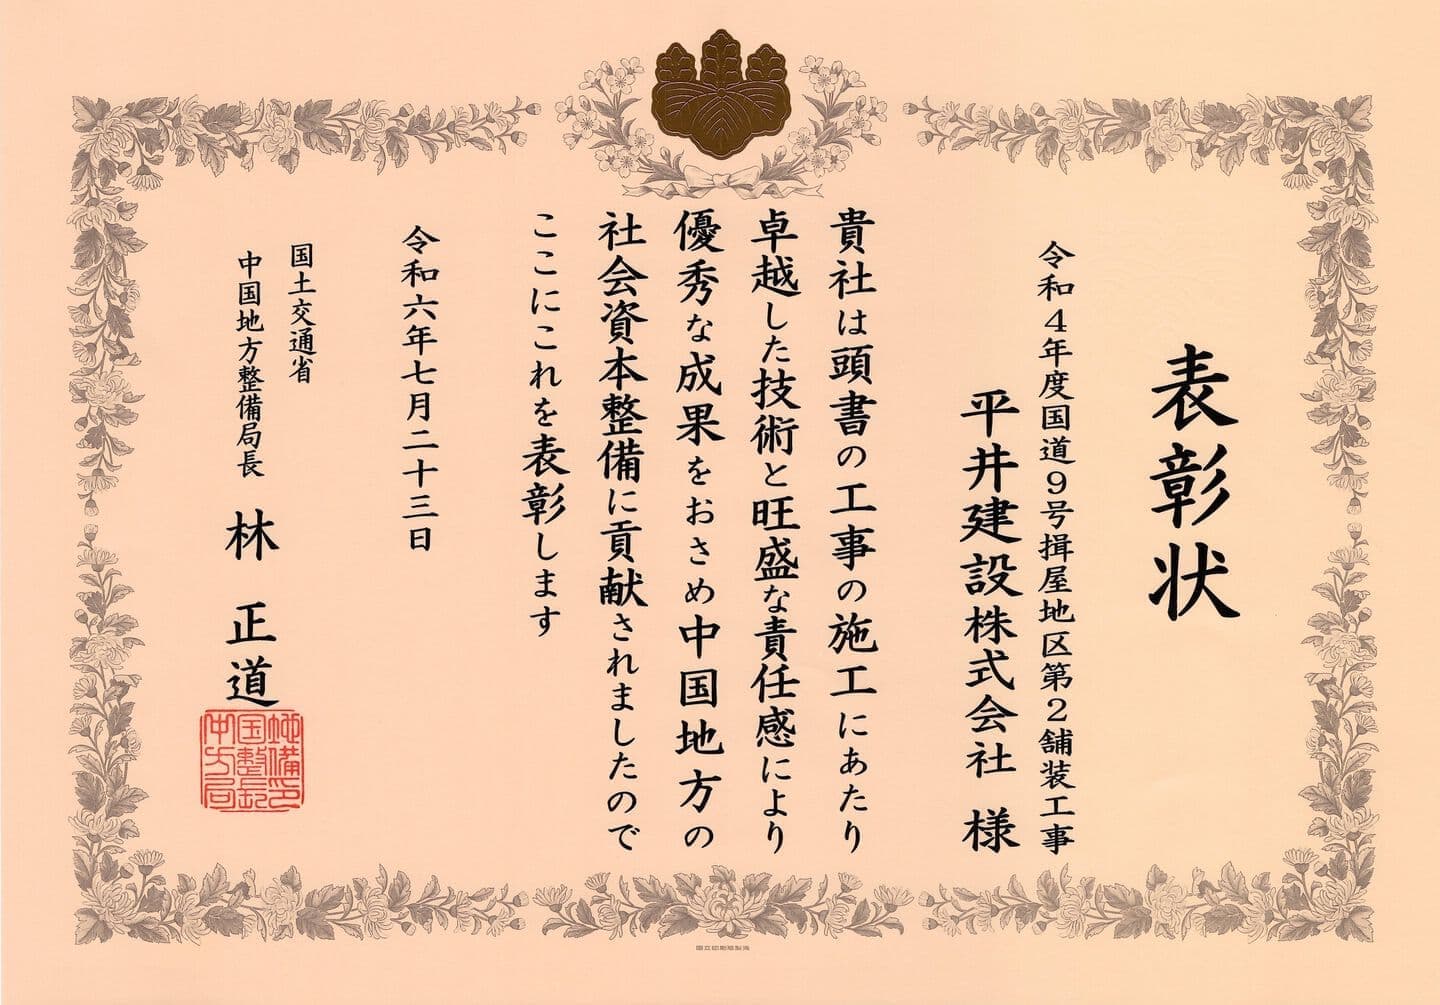 表彰状
令和4年度国道9号揖屋地区第2舗装工事
平井建設株式会社 様
貴社は頭書の工事の施工にあたり
卓越した技術と旺盛な責任感により
優秀な成果をおさめ中国地方の
社会資本整備に貢献されましたので
ここにこれを表彰します
令和六年七月二十三日
国土交通省
中国地方整備局長 林 正道